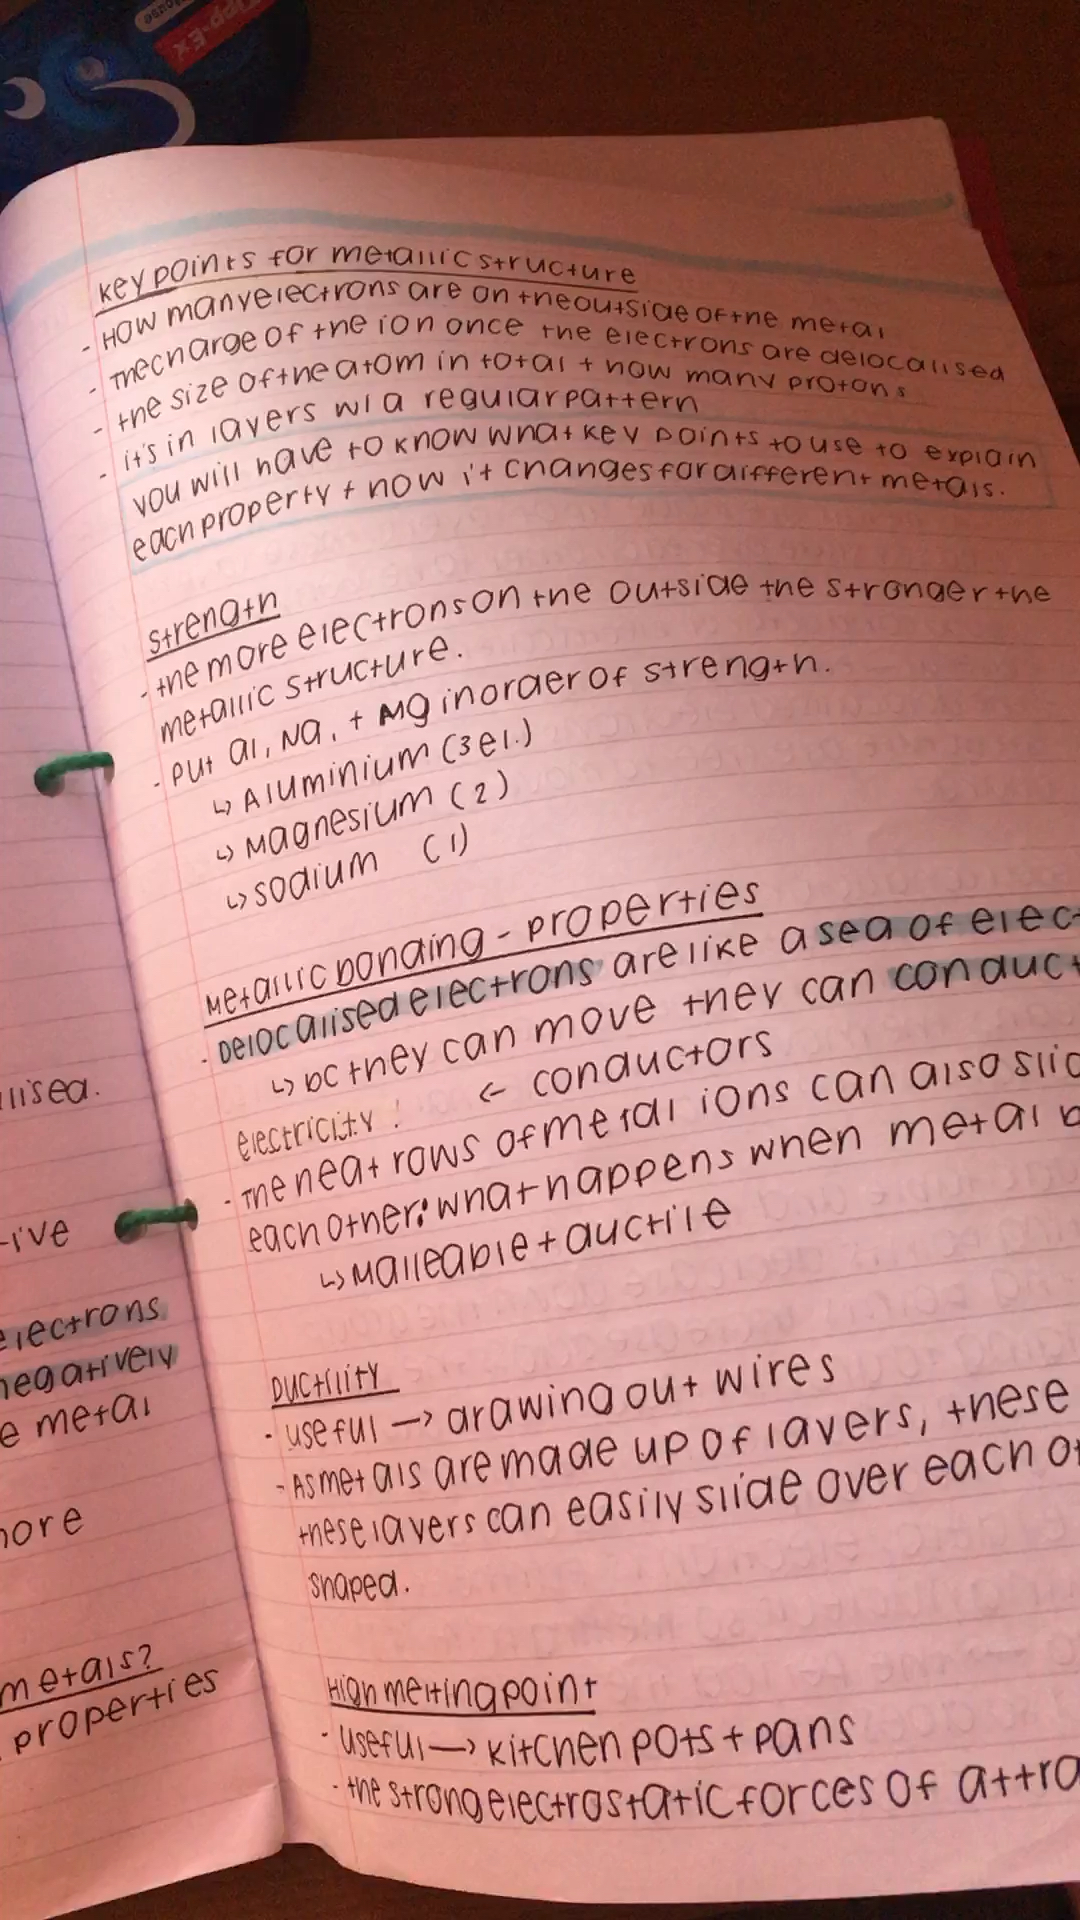 Tipp-Ex
mouse
Key points for metallic structure
- How many electrons are on the outside of the metal
- The charge of the ion once the electrons are delocalised
- the size of the atom in total + how many protons
- it's in layers w/ a regular pattern
You will have to know what key points to use to explain
each property + how it changes for different metals.
Strength
- the more electrons on the outside the stronger the
metallic structure.
- Put al, Na, + Mg in order of strength.
↳ Aluminium (3 el.)
↳ Magnesium (2)
↳ Sodium (1)
Metallic bonding - properties
- Delocalised electrons are like a sea of elec
↳ bc they can move they can conduct
electricity! ← conductors
- The neat rows of metal ions can also slid
each other: what happens when metal b
↳ Malleable + ductile
Ductility
- useful → drawing out wires
- As metals are made up of layers, these
these layers can easily slide over each ot
shaped.
High melting point
- useful → kitchen pots + pans
- the strong electrostatic forces of attra
lised.
-ive
electrons
negatively
e metal
nore
metals?
properties